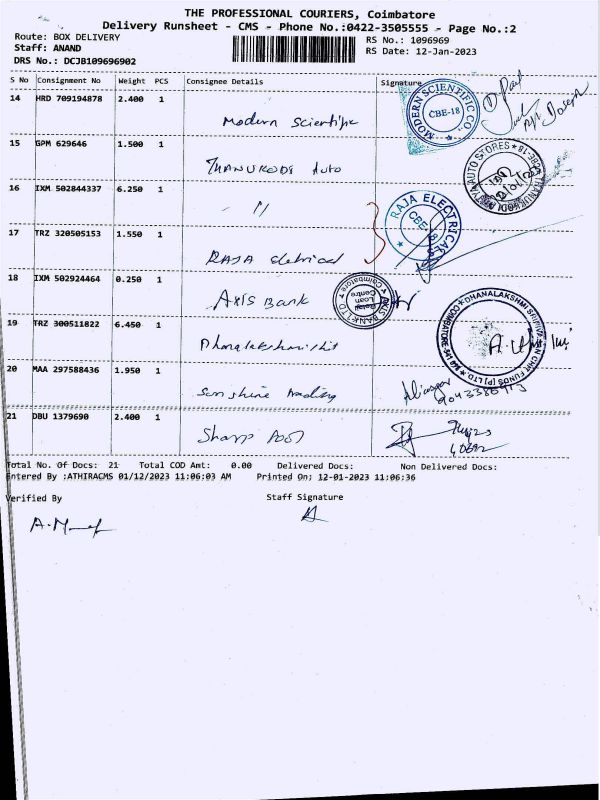 THE PROFESSIONAL COURIERS, Coimbatore
Delivery Runsheet - CMS - Phone No.:0422-3505555 - Page No.:2
Route: BOX DELIVERY
RS No.: 1096969
Staff: ANAND
RS Date: 12-Jan-2023
DRS No.: DCJB109696902
S No Consignment No Weight PCS Consignee Details Signature
14 HRD 709194878 2.400 1
Modern Scientific
MODERN SCIENTIFIC CO.
CBE-18
15 GPM 629646 1.500 1
THANUKODI Auto
AUTO STORES
16 IXM 502844337 6.250 1
- 11
RAJA ELECTRICALS
CBE-18
17 TRZ 320505153 1.550 1
RAJA Eletrical
18 IXM 502924464 0.250 1
AXIS Bank
AXIS BANK LTD
Retail Loan Centre
Coimbatore
19 TRZ 300511822 6.450 1
DHANALAKSHMI SRINIVASAN CHIT FUNDS (P) LTD.
COIMBATORE
20 MAA 297588436 1.950 1
Sun shine trading
21 DBU 1379690 2.400 1
Sharp
Total No. Of Docs: 21 Total COD Amt: 0.00 Delivered Docs: Non Delivered Docs:
Entered By :ATHIRACMS 01/12/2023 11:06:03 AM Printed On: 12-01-2023 11:06:36
Verified By Staff Signature